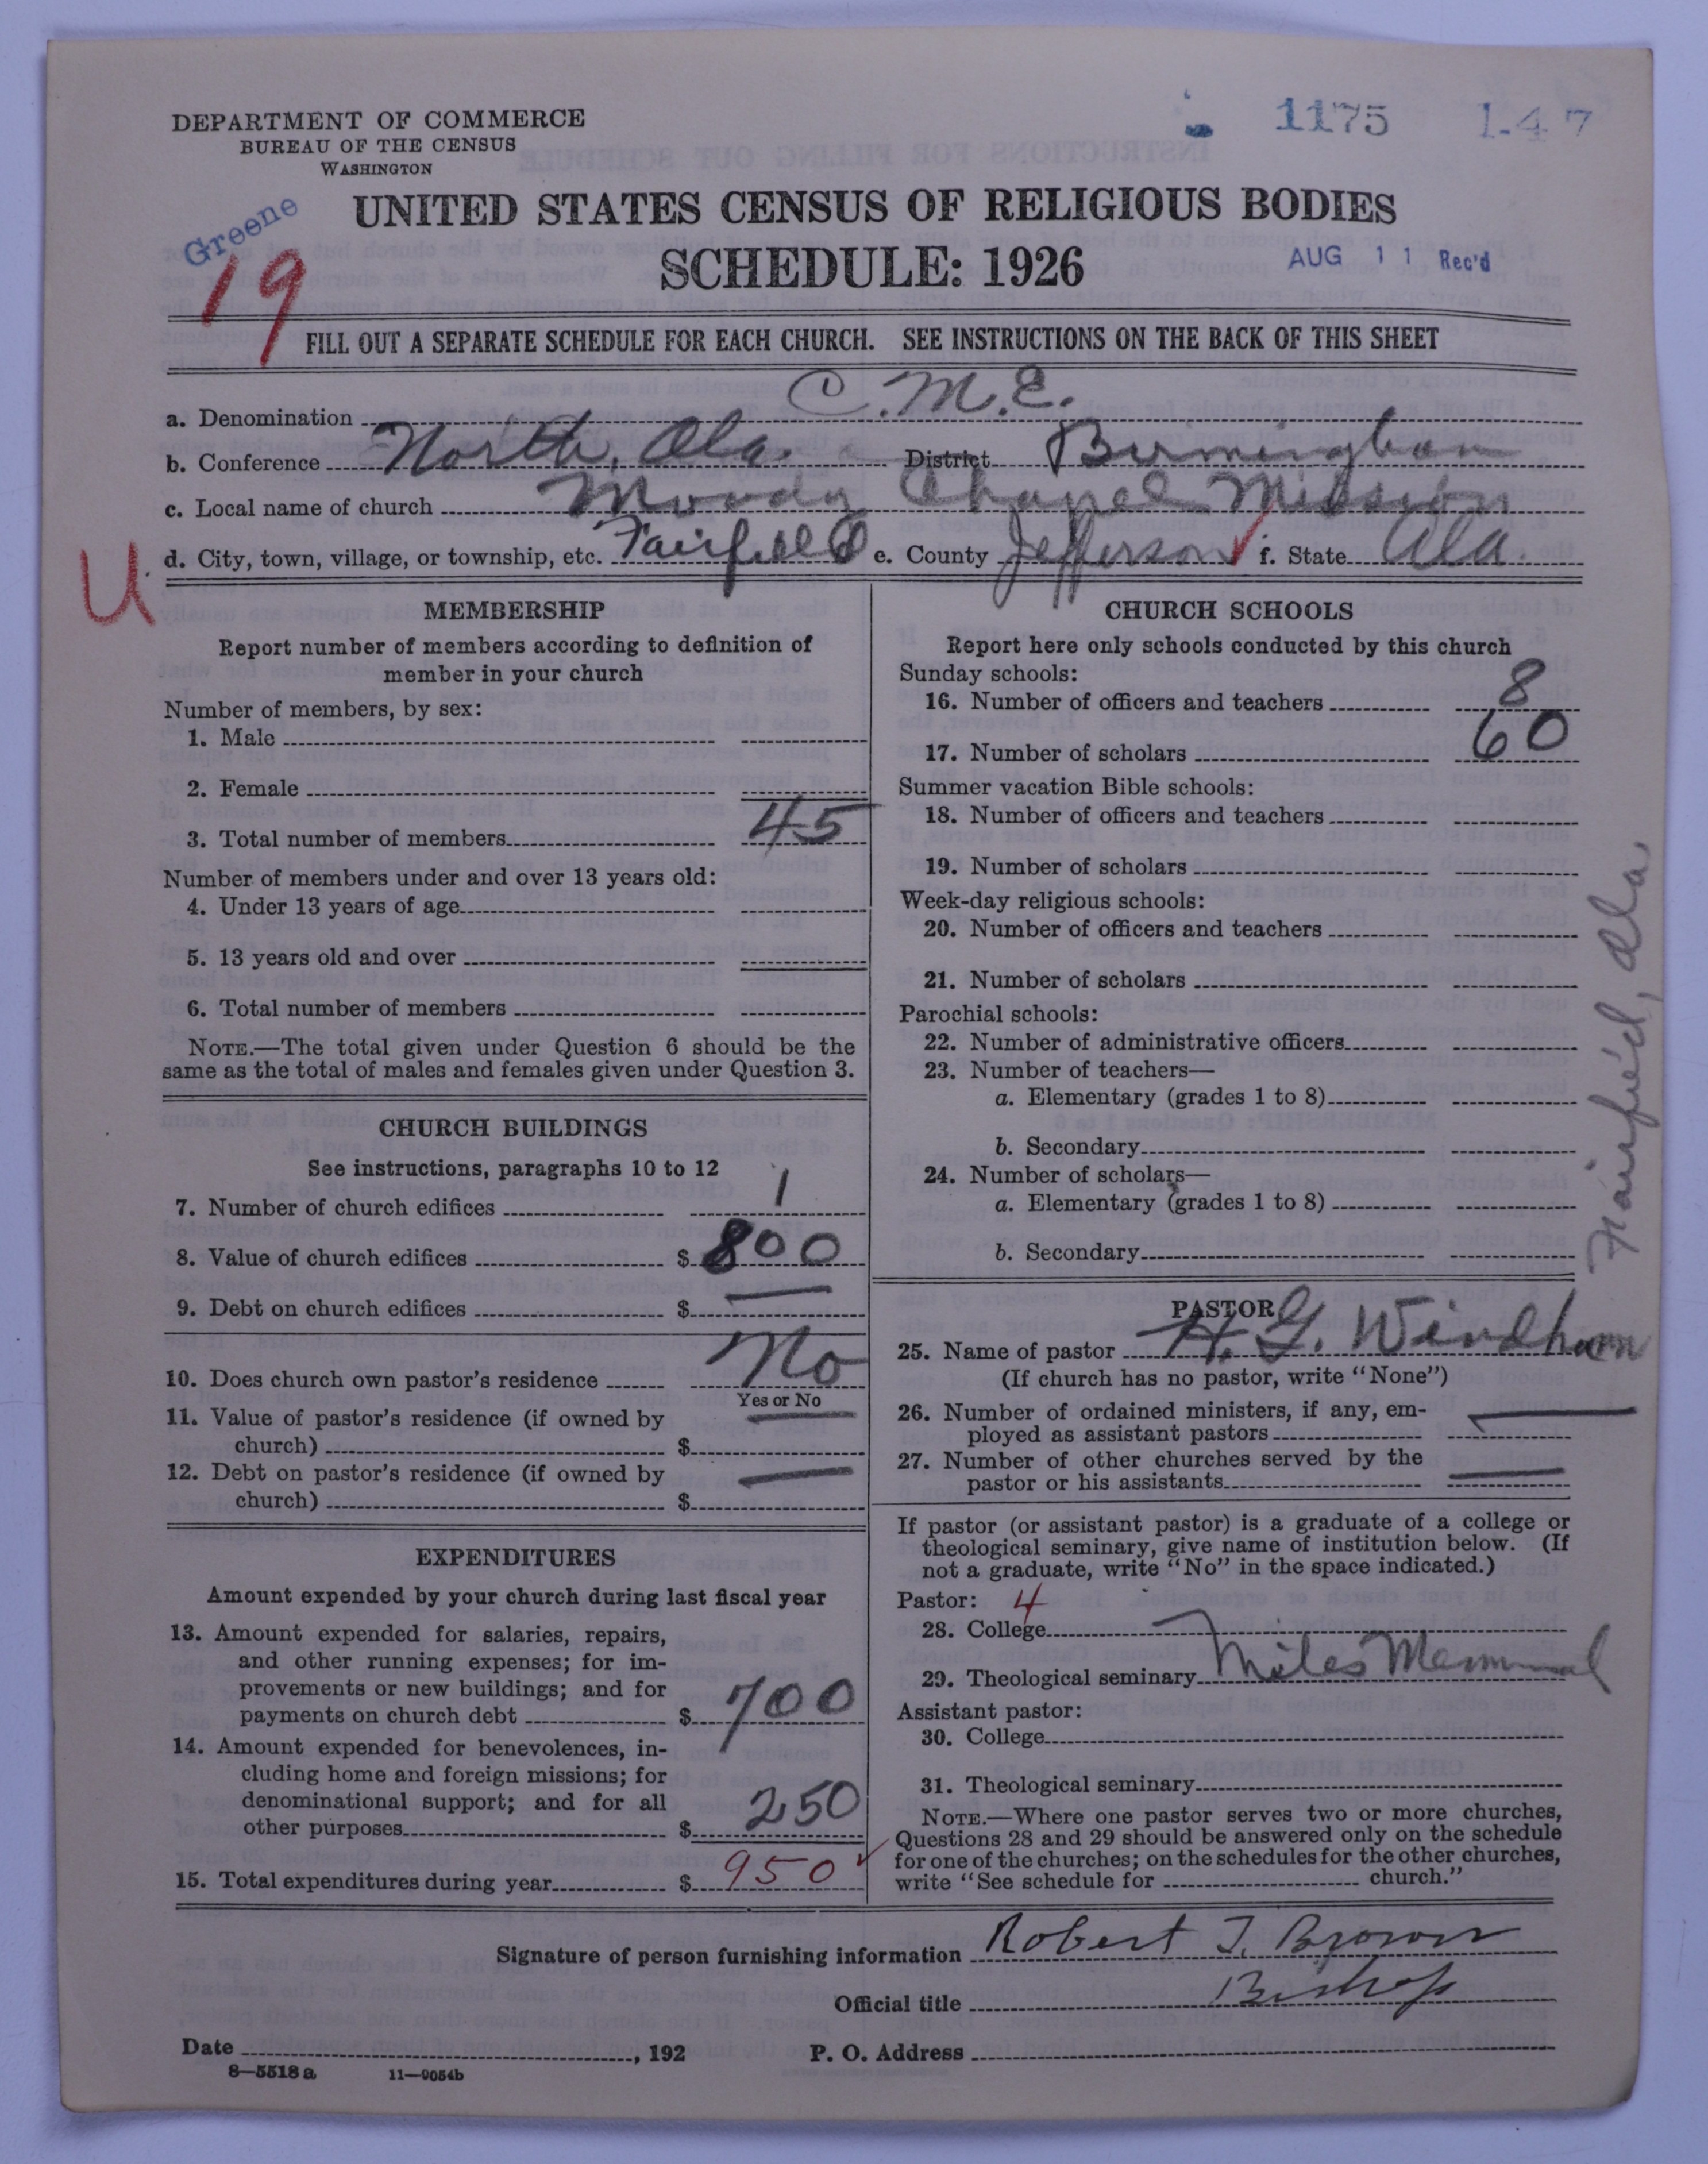 DEPARTMENT OF COMMERCE
BUREAU OF THE CENSUS
WASHINGTON
1175 1-47
Greene
19
UNITED STATES CENSUS OF RELIGIOUS BODIES
SCHEDULE: 1926
AUG 11 Rec'd
FILL OUT A SEPARATE SCHEDULE FOR EACH CHURCH. SEE INSTRUCTIONS ON THE BACK OF THIS SHEET
a. Denomination C.M.E.
b. Conference North, Ala. District Birmingham
c. Local name of church Moody Chapel Mission
d. City, town, village, or township, etc. Fairfield e. County Jefferson f. State Ala.
U
MEMBERSHIP
Report number of members according to definition of
member in your church
Number of members, by sex:
1. Male
2. Female
3. Total number of members 45
Number of members under and over 13 years old:
4. Under 13 years of age
5. 13 years old and over
6. Total number of members
NOTE.—The total given under Question 6 should be the
same as the total of males and females given under Question 3.
CHURCH BUILDINGS
See instructions, paragraphs 10 to 12
7. Number of church edifices 1
8. Value of church edifices $ 800
9. Debt on church edifices $ —
10. Does church own pastor's residence No
Yes or No
11. Value of pastor's residence (if owned by
church) $ —
12. Debt on pastor's residence (if owned by
church) $ —
EXPENDITURES
Amount expended by your church during last fiscal year
13. Amount expended for salaries, repairs,
and other running expenses; for im-
provements or new buildings; and for
payments on church debt $ 700
14. Amount expended for benevolences, in-
cluding home and foreign missions; for
denominational support; and for all
other purposes $ 250
15. Total expenditures during year $ 950 ✓
CHURCH SCHOOLS
Report here only schools conducted by this church
Sunday schools:
16. Number of officers and teachers 8
17. Number of scholars 60
Summer vacation Bible schools:
18. Number of officers and teachers
19. Number of scholars
Week-day religious schools:
20. Number of officers and teachers
21. Number of scholars
Parochial schools:
22. Number of administrative officers
23. Number of teachers—
a. Elementary (grades 1 to 8)
b. Secondary
24. Number of scholars—
a. Elementary (grades 1 to 8)
b. Secondary
Fairfield, Ala.
PASTOR
25. Name of pastor H. G. Windham
(If church has no pastor, write "None")
26. Number of ordained ministers, if any, em-
ployed as assistant pastors —
27. Number of other churches served by the
pastor or his assistants —
If pastor (or assistant pastor) is a graduate of a college or
theological seminary, give name of institution below. (If
not a graduate, write "No" in the space indicated.)
Pastor: 4
28. College —
29. Theological seminary Miles Memorial
Assistant pastor:
30. College
31. Theological seminary
NOTE.—Where one pastor serves two or more churches,
Questions 28 and 29 should be answered only on the schedule
for one of the churches; on the schedules for the other churches,
write "See schedule for church."
Signature of person furnishing information Robert T. Brown
Official title Bishop
Date , 192 P. O. Address
8—5518 a 11—9054b